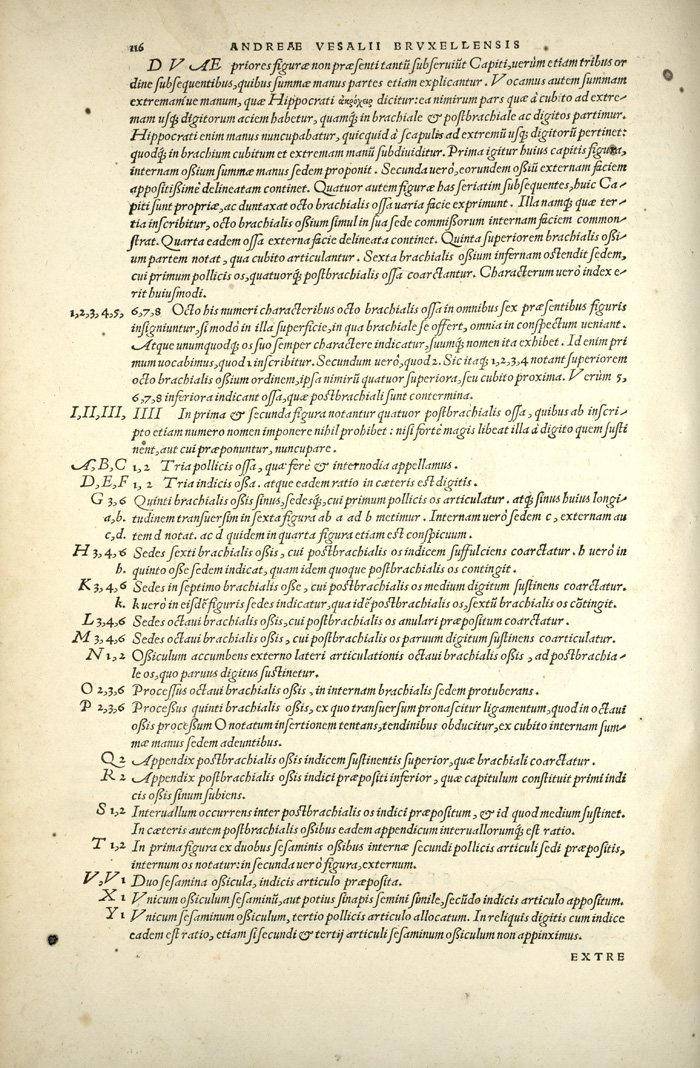 116 ANDREAE VESALII BRVXELLENSIS
DVAE priores figuræ non præsenti tantũ subseruiũt Capiti, uerùm etiam tribus or
dine subsequentibus, quibus summæ manus partes etiam explicantur. Vocamus autem summam
extremam'ue manum, quæ Hippocrati ἀκρόχειρ dicitur: ea nimirum pars quæ à cubito ad extre-
mam usq; digitorum aciem habetur, quamq; in brachiale & postbrachiale ac digitos partimur.
Hippocrati enim manus nuncupabatur, quicquid à scapulis ad extremũ usq; digitorũ pertinet:
quodq; in brachium cubitum et extremam manũ subdiuiditur. Prima igitur huius capitis figura,
internam oßium summæ manus sedem proponit. Secunda uerò, eorundem oßiũ externam faciem
appositißimè delineatam continet. Quatuor autem figuræ has seriatim subsequentes, huic Ca-
piti sunt propriæ, ac duntaxat octo brachialis ossa uaria facie exprimunt. Illa namq; quæ ter-
tia inscribitur, octo brachialis oßium simul in sua sede commissorum internam faciem common-
strat. Quarta eadem ossa externa facie delineata continet. Quinta superiorem brachialis oßi-
um partem notat, qua cubito articulantur. Sexta brachialis oßium infernam ostendit sedem,
cui primum pollicis os, quatuorq; postbrachialis ossa coarctantur. Characterum uerò index e-
rit huiusmodi.
1,2,3,4,5, 6,7,8 Octo his numeri characteribus octo brachialis ossa in omnibus sex præsentibus figuris
insigniuntur, si modò in illa superficie, in qua brachiale se offert, omnia in conspectum ueniant.
Atque unumquodq; os suo semper charactere indicatur, suumq; nomen ita exhibet. Id enim pri
mum uocabimus, quod 1 inscribitur. Secundum uerò, quod 2. Sic itaq; 1, 2, 3, 4 notant superiorem
octo brachialis oßium ordinem, ipsa nimirũ quatuor superiora, seu cubito proxima. Verùm 5,
6, 7, 8 inferiora indicant ossa, quæ postbrachiali sunt contermina.
I, II, III, IIII In prima & secunda figura notantur quatuor postbrachialis ossa, quibus ab inscri-
pto etiam numero nomen imponere nihil prohibet: nisi fortè magis libeat illa à digito quem susti
nent, aut cui præponuntur, nuncupare.
A, B, C 1, 2 Tria pollicis ossa, quæ ferè & internodia appellamus.
D, E, F 1, 2 Tria indicis oßa. atque eadem ratio in cæteris est digitis.
G 3,6 Quinti brachialis oßis sinus, sedesq;, cui primum pollicis os articulatur. atq; sinus huius longi-
a, b. tudinem transuersim in sexta figura ab a ad b metimur. Internam uerò sedem c, externam au
c, d. tem d notat. ac d quidem in quarta figura etiam est conspicuum.
H 3,4,6 Sedes sexti brachialis oßis, cui postbrachialis os indicem suffulciens coarctatur. h uerò in
h. quinto osse sedem indicat, quam idem quoque postbrachialis os contingit.
K 3,4,6 Sedes in septimo brachialis osse, cui postbrachialis os medium digitum sustinens coarctatur.
k. k uerò in eisdẽ figuris sedes indicatur, qua idẽ postbrachialis os, sextũ brachialis os cõtingit.
L 3,4,6 Sedes octaui brachialis oßis, cui postbrachialis os anulari præpositum coarctatur.
M 3,4,6 Sedes octaui brachialis oßis, cui postbrachialis os paruum digitum sustinens coarticulatur.
N 1,2 Oßiculum accumbens externo lateri articulationis octaui brachialis oßis, ad postbrachia-
le os, quo paruus digitus sustinetur.
O 2,3,6 Processus octaui brachialis oßis, in internam brachialis sedem protuberans.
P 2,3,6 Processus quinti brachialis oßis, ex quo transuersum pronascitur ligamentum, quod in octaui
oßis processum O notatum insertionem tentans, tendinibus obducitur, ex cubito internam sum-
mæ manus sedem adeuntibus.
Q 2 Appendix postbrachialis oßis indicem sustinentis superior, quæ brachiali coarctatur.
R 2 Appendix postbrachialis oßis indici præpositi inferior, quæ capitulum constituit primi indi
cis oßis sinum subiens.
S 1,2 Interuallum occurrens inter postbrachialis os indici præpositum, & id quod medium sustinet.
In cæteris autem postbrachialis oßibus eadem appendicum interuallorumq; est ratio.
T 1,2 In prima figura ex duobus sesaminis oßibus internæ secundi pollicis articuli sedi præpositis,
internum os notatur: in secunda uerò figura, externum.
V, V 1 Duo sesamina oßicula, indicis articulo præposita.
X 1 Vnicum oßiculum sesaminũ, aut potius sinapis semini simile, secũdo indicis articulo appositum.
Y 1 Vnicum sesaminum oßiculum, tertio pollicis articulo allocatum. In reliquis digitis cum indice
eadem est ratio, etiam si secundi & tertij articuli sesaminum oßiculum non appinximus.
EXTRE